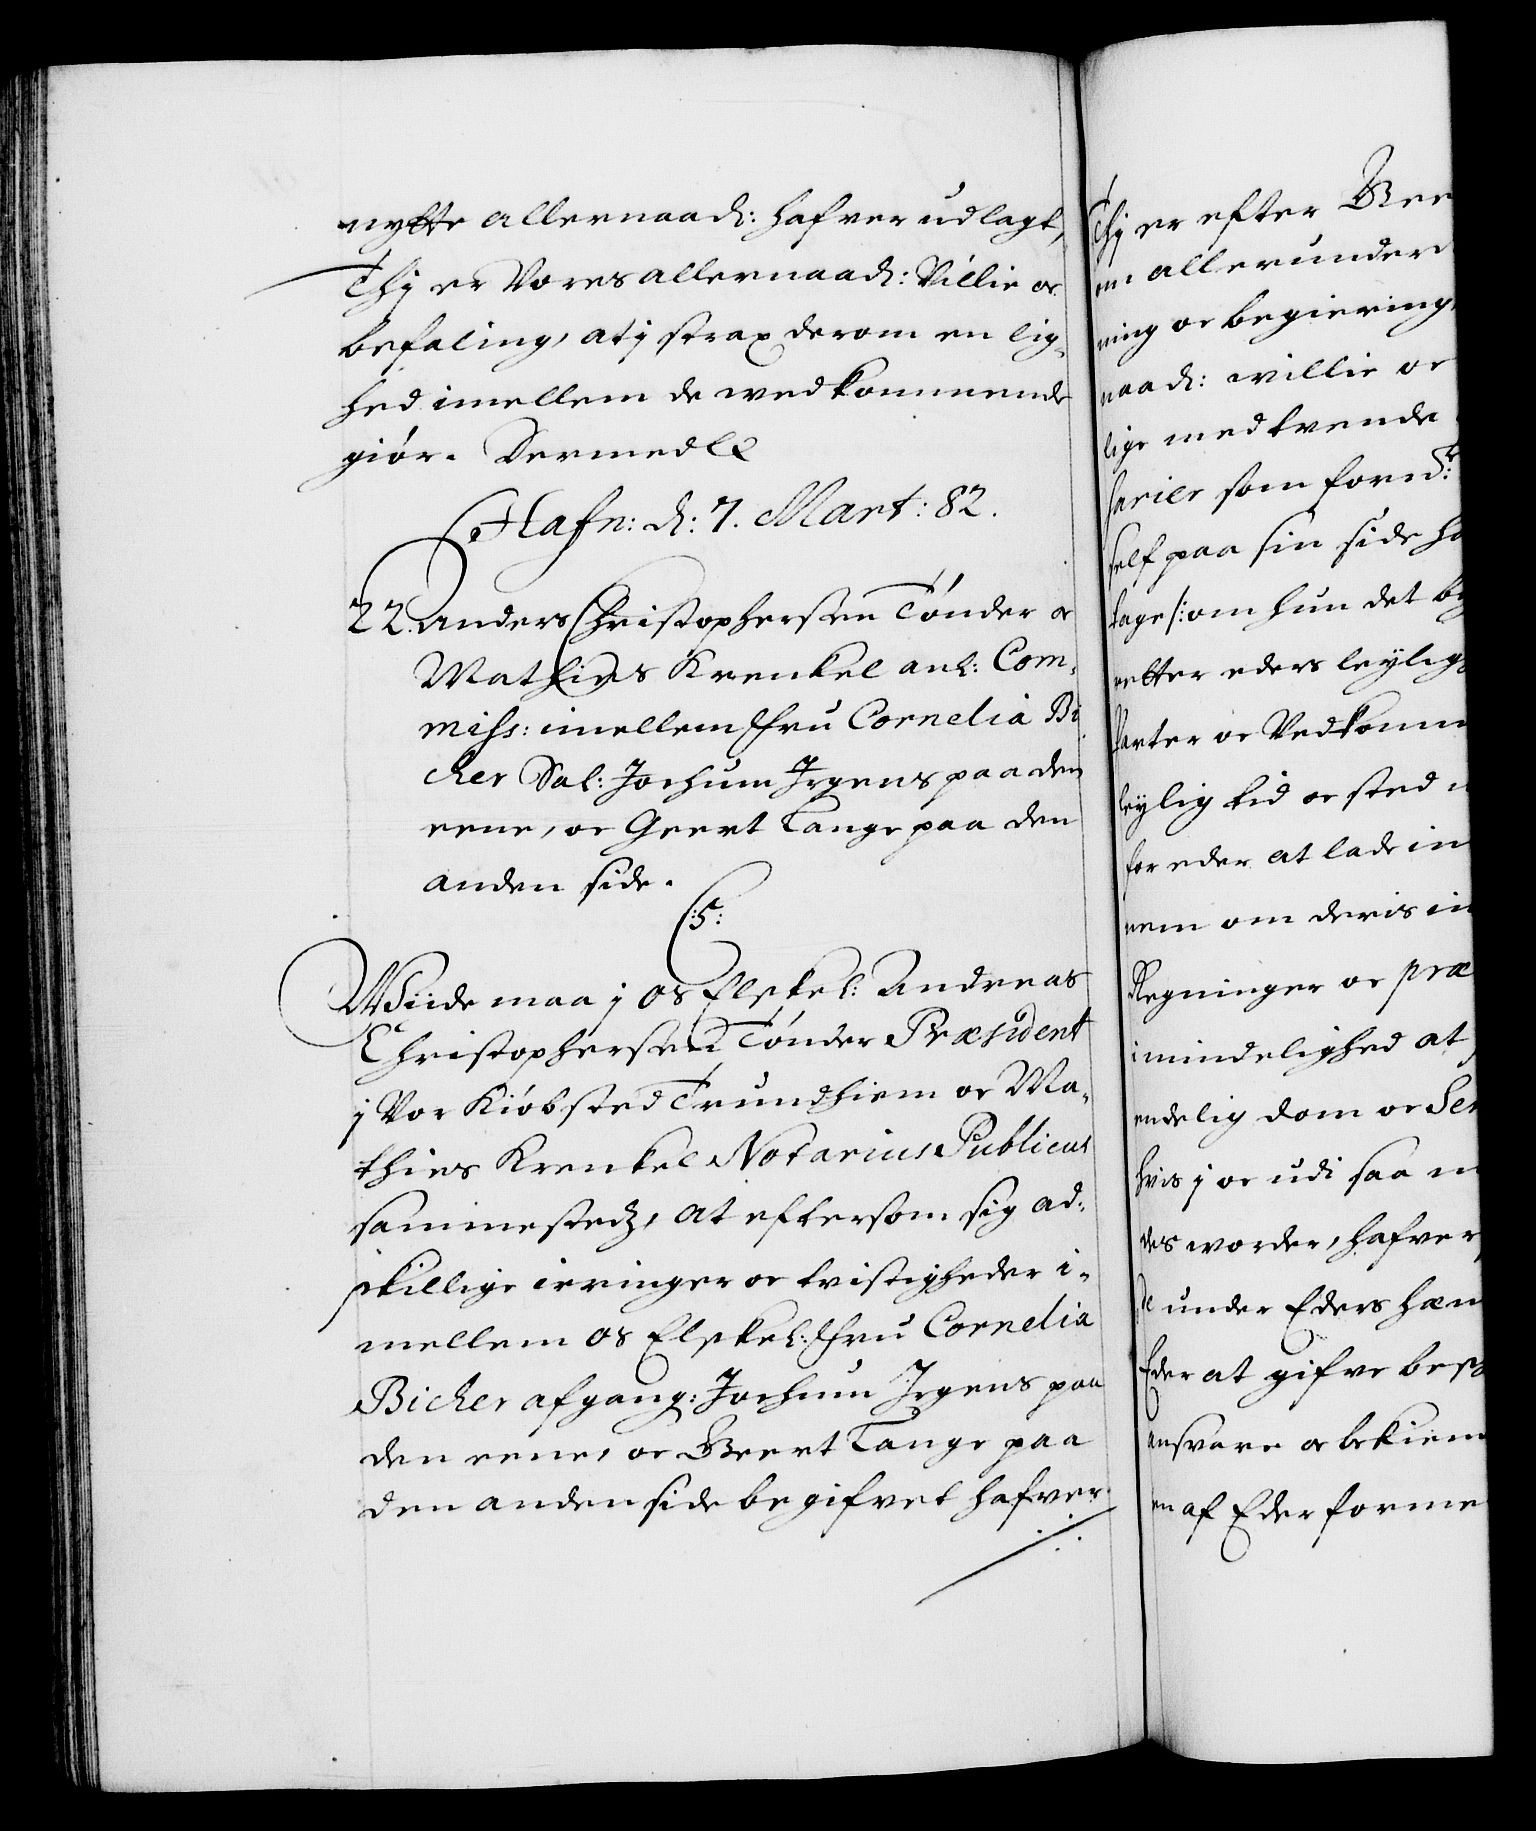 nytte allernaad: hafver udlagt,
Thj er Vores allernaad: Villie oc
befaling, at j strax derom en lig¬
hed imellem de wedkommende
giør. Dermed etc
Hafn: d: 7. Mart: 82.
22. Anders Christophersen Tønder oc
Mathies Krenkel anl: Com¬
miss: imellem Fru Cornelia Bi
cher Sal: Jochum Irgens paa den
eene, oc Geert Lange paa den
anden side.
:5:
Wiide maa j os Elskel: Andreas
Christophersen Tønder Præsident
j Vor Kiøbsted Trundhiem oc Ma¬
thies Krenkel Notarius Publicus
sammesteds, at eftersom sig ad¬
skillige irringer oc tvistigheder i¬
mellem os Elskel: Fru Cornelia
Bicher afgang: Jochum Irgens paa
den eene, oc Geert Lange paa
den anden side begifvet hafver
Thj er efter Bee
en allerunder
ning oc begiering,
naad: willie oc
lige medkvende
sarier som forn:
self paa sin side ha
tage /: om hun det be
retter eders leylig
Parter oc Vedkomm
leylig tid oc sted
for eder at lade in
nem om deris in
Regninger oc præ
i mindelighed at
endelig dom oc Sen
hvis j oc udi saa m
des worder, hafver
se under Eders hæn
Eder at gifve besk
ansvare oc bekiend
en af Eder forme